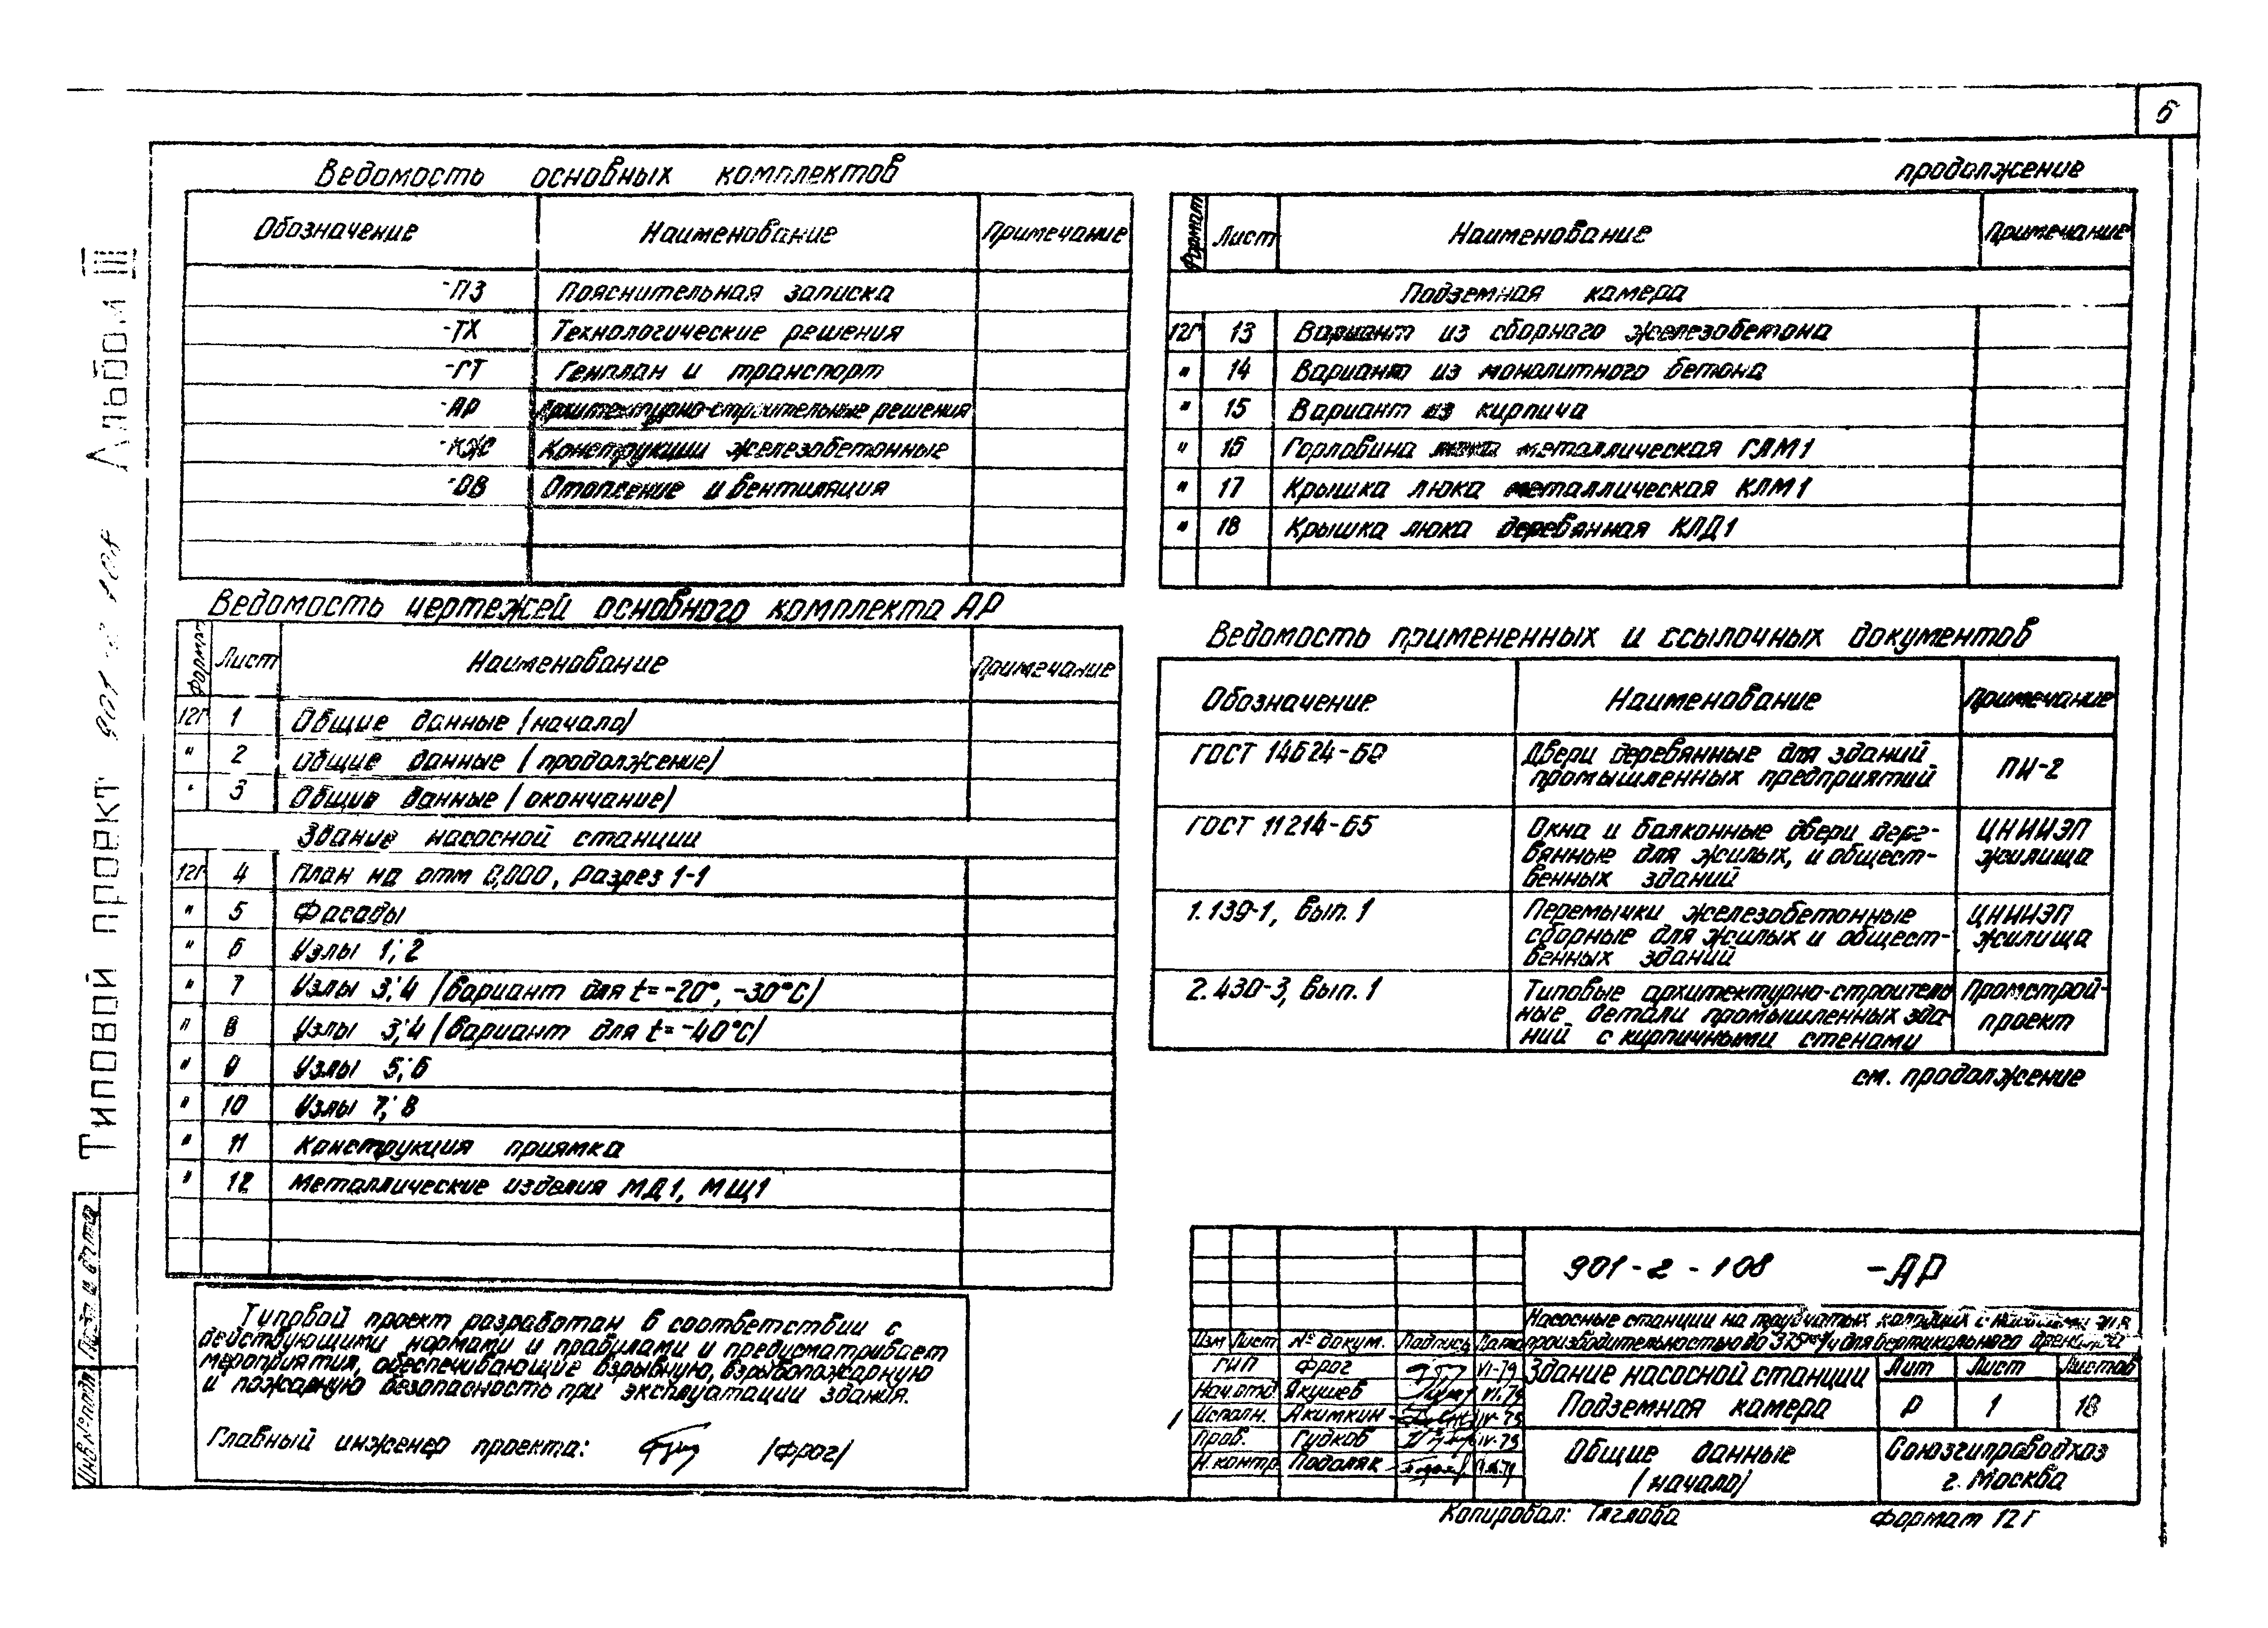 6
Типовой проект 901-2-108 Альбом III
Ведомость основных комплектов
Обозначение Наименование Примечание
-ПЗ Пояснительная записка
-ТХ Технологические решения
-ГТ Генплан и транспорт
-АР Архитектурно-строительные решения
-КЖ Конструкции железобетонные
-ОВ Отопление и вентиляция
Ведомость чертежей основного комплекта АР
Формат Лист Наименование Примечание
12Г 1 Общие данные (начало)
" 2 Общие данные (продолжение)
" 3 Общие данные (окончание)
Здание насосной станции
12Г 4 План на отм 0,000, Разрез 1-1
" 5 Фасады
" 6 Узлы 1; 2
" 7 Узлы 3; 4 (вариант для t=-20°, -30°С)
" 8 Узлы 3; 4 (вариант для t=-40°С)
" 9 Узлы 5; 6
" 10 Узлы 7; 8
" 11 Конструкция приямка
" 12 Металлические изделия МД1, МЩ1
Типовой проект разработан в соответствии с
действующими нормами и правилами и предусматривает
мероприятия, обеспечивающие взрывную, взрывопожарную
и пожарную безопасность при эксплуатации здания.
Главный инженер проекта: (Фрог)
продолжение
Формат Лист Наименование Примечание
Подземная камера
12Г 13 Вариант из сборного железобетона
" 14 Вариант из монолитного бетона
" 15 Вариант из кирпича
" 16 Горловина люка металлическая ГЛМ1
" 17 Крышка люка металлическая КЛМ1
" 18 Крышка люка деревянная КЛД1
Ведомость примененных и ссылочных документов
Обозначение Наименование Примечание
ГОСТ 14624-69 Двери деревянные для зданий
промышленных предприятий ПИ-2
ГОСТ 11214-65 Окна и балконные двери дере-
вянные для жилых, и общест-
венных зданий ЦНИИЭП
жилища
1.139-1, вып. 1 Перемычки железобетонные
сборные для жилых и общест-
венных зданий ЦНИИЭП
жилища
2.430-3, вып. 1 Типовые архитектурно-строитель
ные детали промышленных зда-
ний с кирпичными стенами Промстрой-
проект
см. продолжение
901-2-108 -АР
Насосные станции на трубчатых колодцах с насосами
производительностью до 375 м³/ч для вертикального дренажа
Изм Лист № докум. Подпись Дата
ГИП Фрог VI-79
Нач.отд Якушев VI.79
Исполн. Акимкин IV-79
Пров. Гудков IV-79
Н.контр. Подоляк
Здание насосной станции
Подземная камера
Лит Лист Листов
Р 1 18
Общие данные
(начало)
Союзгипроводхоз
г. Москва
Копировал: Тяглова Формат 12Г
Инв№подл Подп и дата